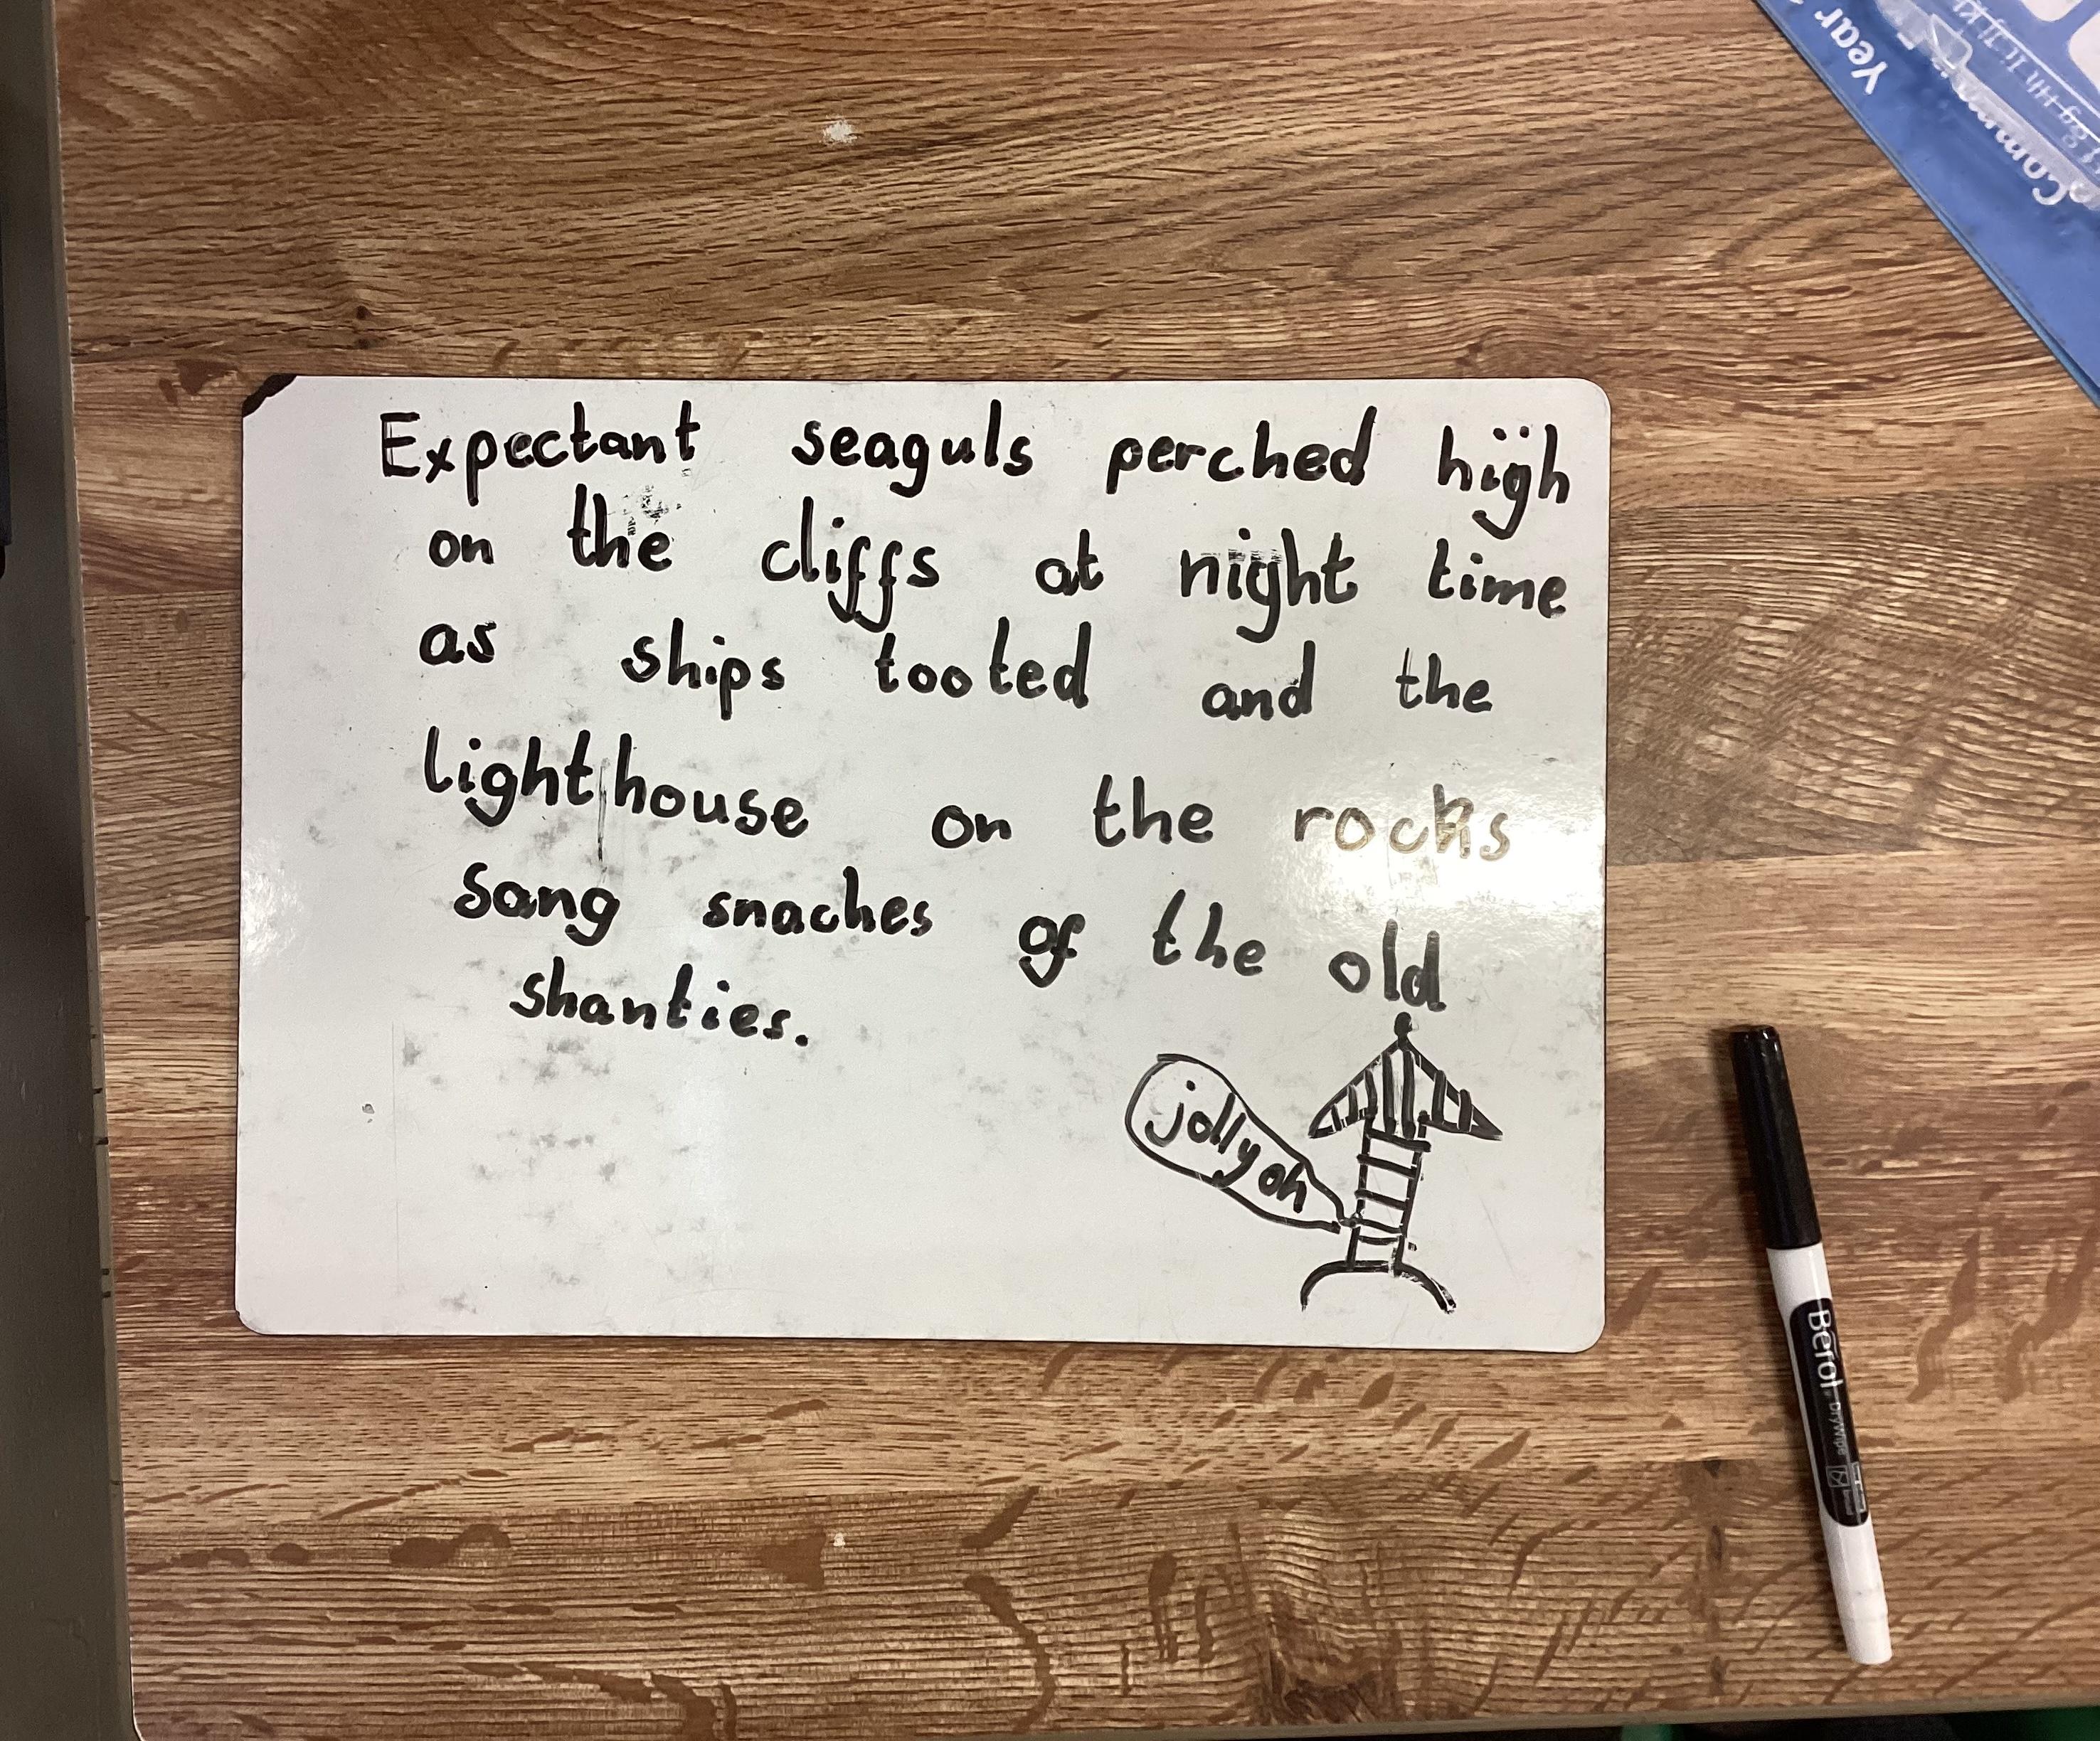 Expectant seaguls perched high
on the cliffs at night time
as ships tooted and the
lighthouse on the rocks
sang snaches of the old
shanties.
jolly oh
Year
Comm
Berol DryWipe